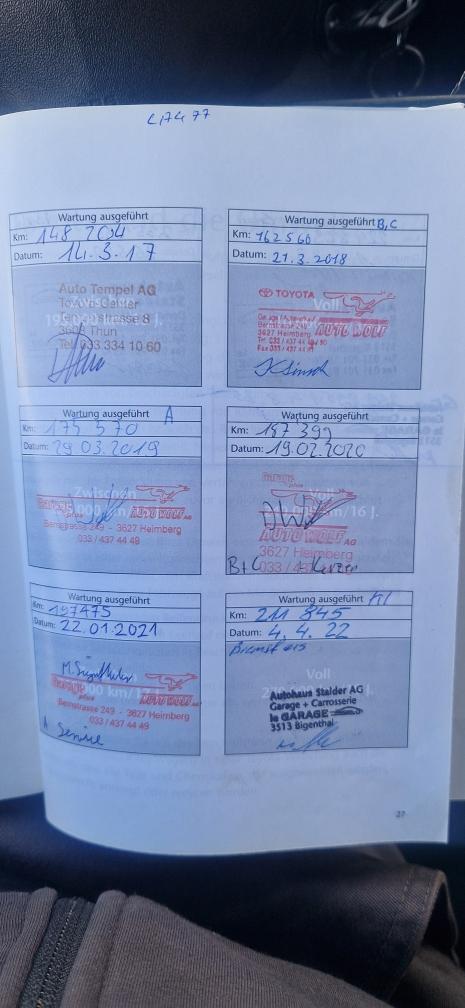 Wartung ausgeführt
Km: 148 204
Datum: 14.3.17
Auto Tempel AG
Toyota-Center
strasse 8
3608 Thun
Tel. 033 334 10 60
Wartung ausgeführt B,C
Km: 162560
Datum: 21.3.2018
Voll
TOYOTA
Bernstrasse 249
3627 Heimberg
AUTO WOLF
Tel. 033 / 437 44
Fax 033 / 437 44
Wartung ausgeführt A
Km: 175 570
Datum: 29.03.2019
Zwischen
garage plus AUTO WOLF AG
Bernstrasse 249 - 3627 Heimberg
033 / 437 44 49
Wartung ausgeführt
Datum: 19.02.2020
garage plus
km/16 J.
AUTO WOLF AG
3627 Heimberg
B+C Kerzen
Wartung ausgeführt
Km: 197475
Datum: 22.01.2021
garage plus AUTO WOLF AG
000 km/
Bernstrasse 249 - 3627 Heimberg
033 / 437 44 49
A Service
Wartung ausgeführt
Km: 211 845
Datum: 4.4.22
Voll
Autohaus Stalder AG
Garage + Carrosserie
le GARAGE
3513 Bigenthal
27